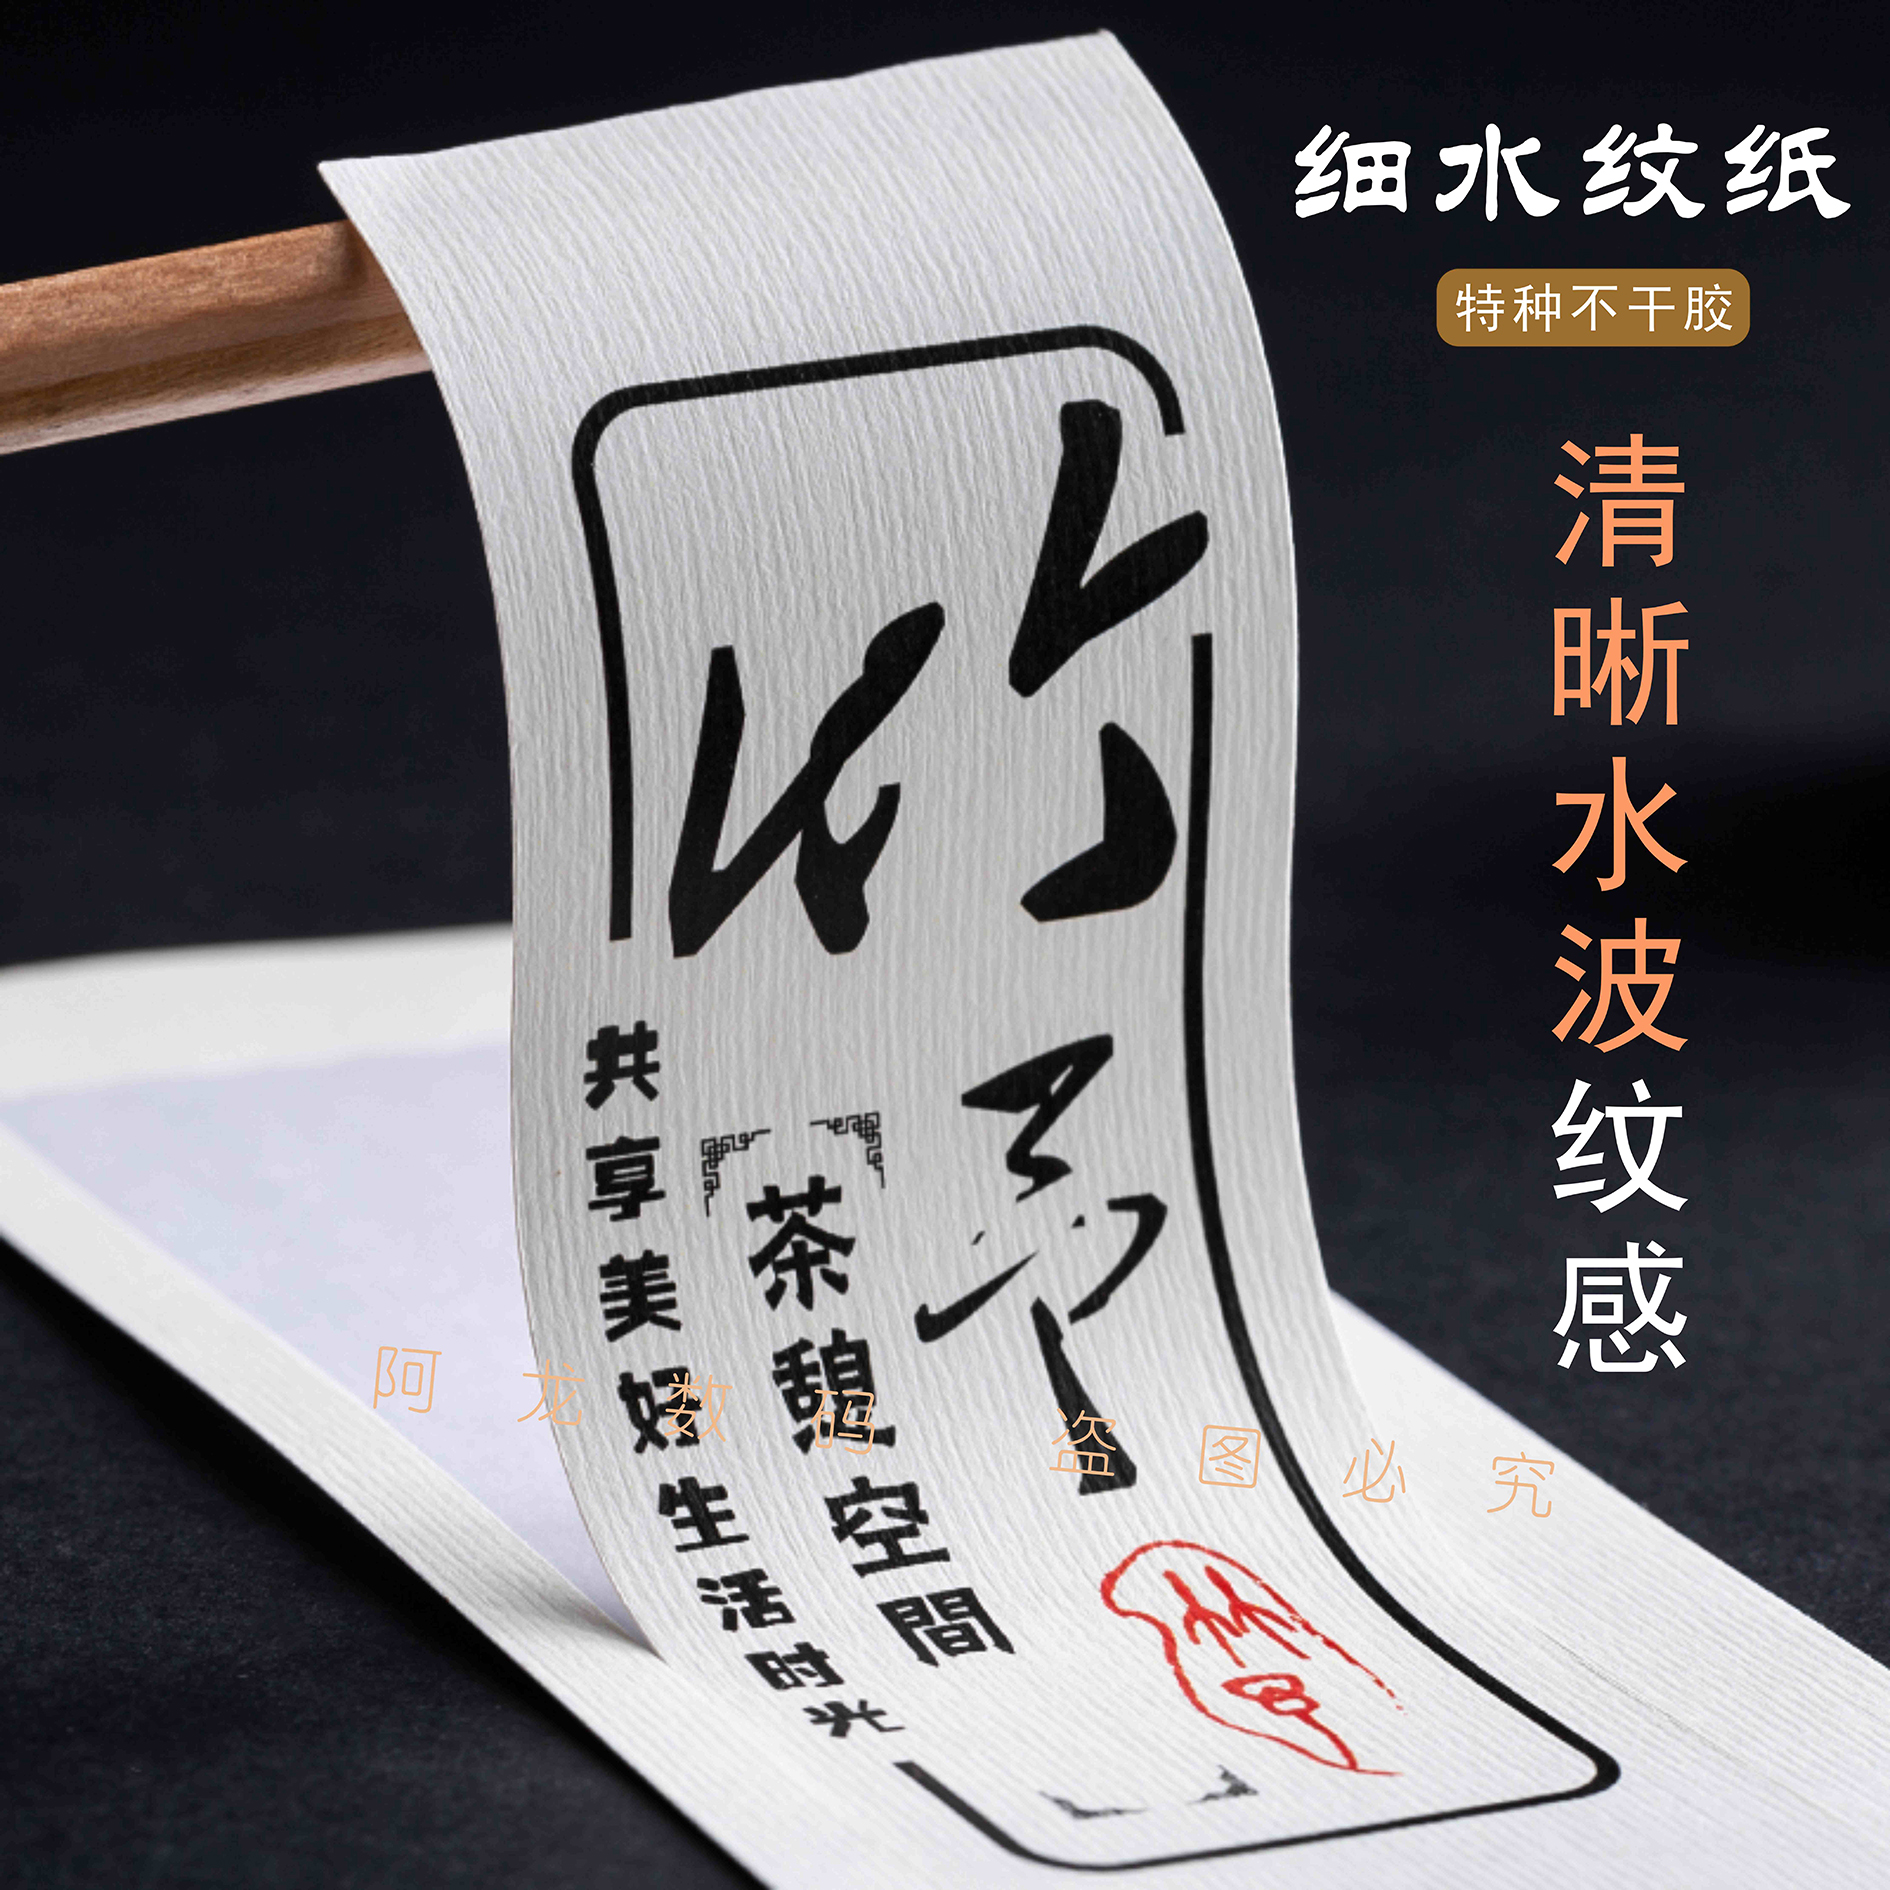 细水纹纸
特种不干胶
清晰水波纹感
茶憩空間
共享美好生活时光
阿龙数码 盗图必究